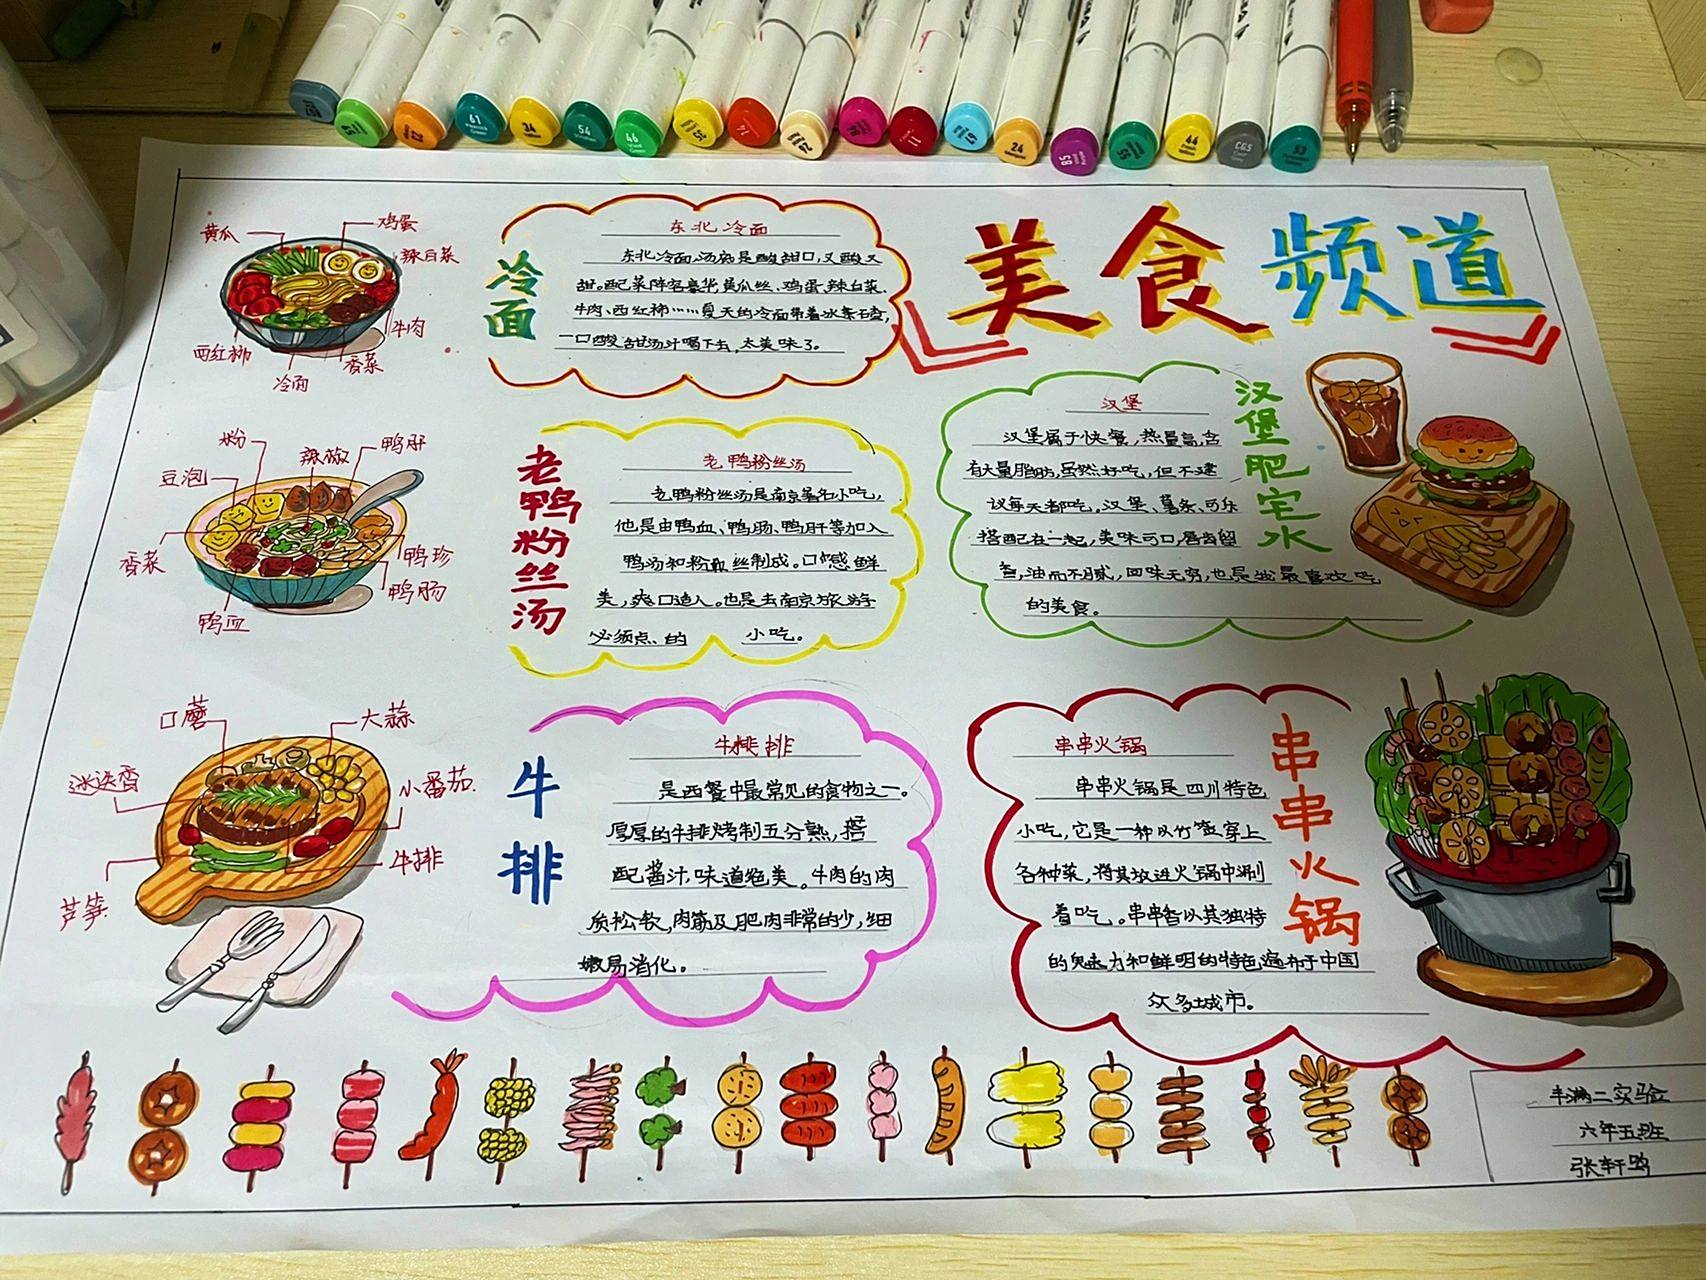 美食频道
黄瓜
鸡蛋
辣白菜
牛肉
香菜
冷面
西红柿
冷面
东北冷面
东北冷面,汤底是酸甜口,又酸又
甜。配菜阵容豪华黄瓜丝、鸡蛋、辣白菜、
牛肉、西红柿……夏天的冷面带着冰条碴,
一口酸甜汤汁喝下去,太美味了。
粉
辣椒
鸭肝
豆泡
香菜
鸭珍
鸭肠
鸭血
老鸭粉丝汤
老鸭粉丝汤
老鸭粉丝汤是南京著名小吃,
他是由鸭血、鸭肠、鸭肝等加入
鸭汤和粉丝制成。口感鲜
美,爽口适人。也是去南京旅游
必须点的 小吃。
汉堡肥宅水
汉堡
汉堡属于快餐,热量高,含
有大量脂肪,虽然好吃,但不建
议每天都吃。汉堡、薯条、可乐
搭配在一起,美味可口,唇齿留
香,油而不腻,回味无穷,也是我最喜欢吃
的美食。
口蘑
大蒜
迷迭香
小番茄
牛排
芦笋
牛排
牛排
是西餐中最常见的食物之一。
厚厚的牛排烤制五分熟,搭
配酱汁,味道绝美。牛肉的肉
质松软,肉筋及肥肉非常的少,细
嫩易消化。
串串火锅
串串火锅
串串火锅是四川特色
小吃,它是一种以竹签穿上
各种菜,将其放进火锅中涮
着吃。串串香以其独特
的魅力和鲜明的特色遍布于中国
众多城市。
丰满二实验
六年五班
张轩